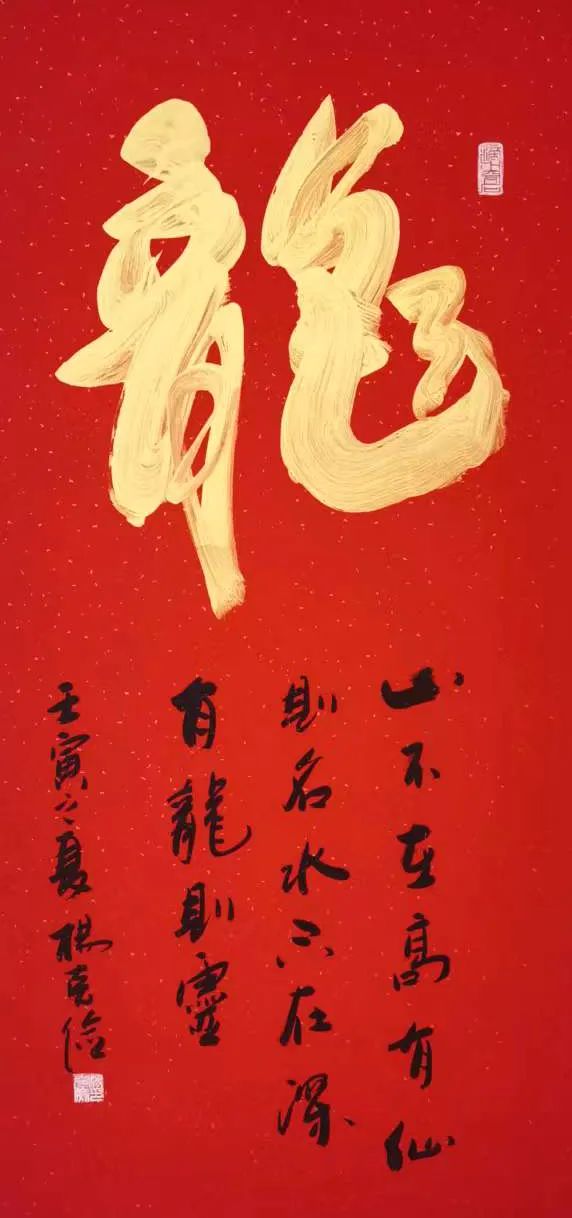 龍
山不在高有仙
則名水不在深
有龍則靈
壬寅之夏 楊克儉